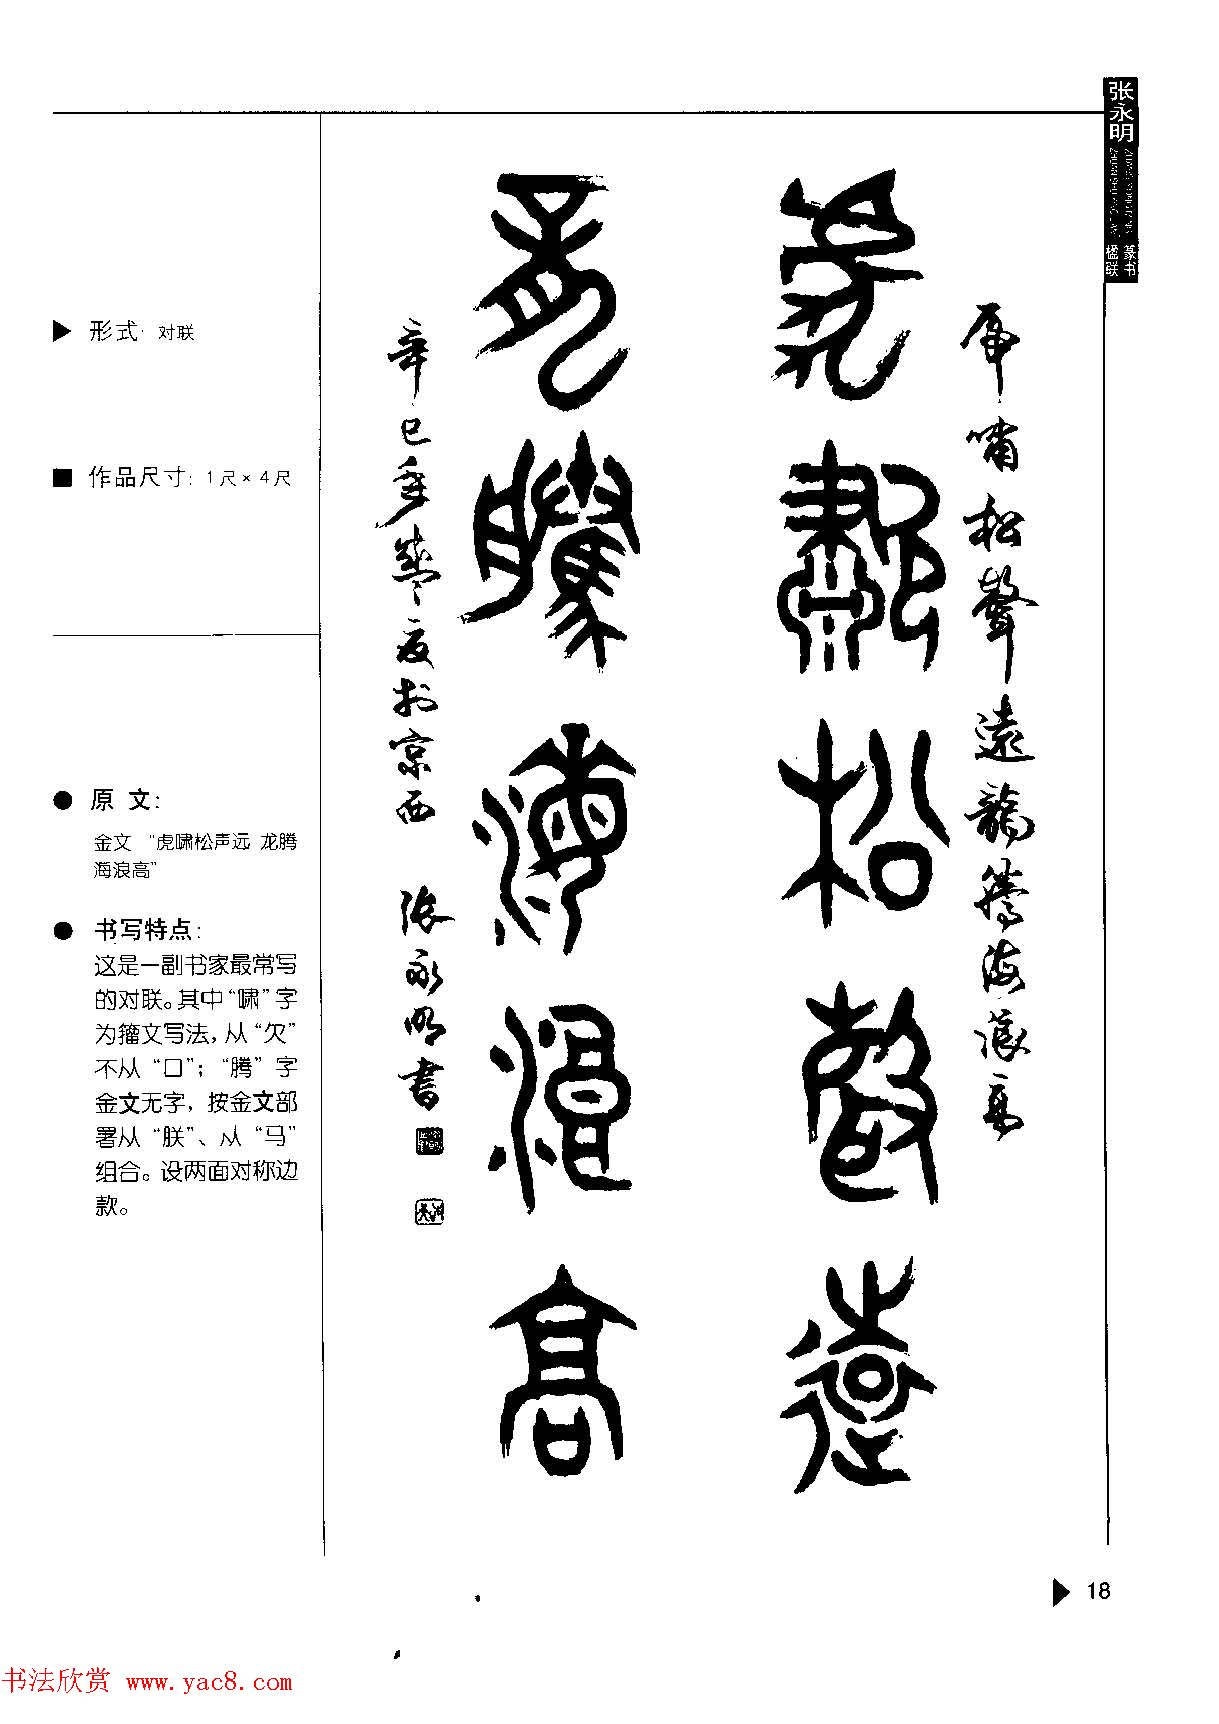 张永明
篆书
楹联
形式：对联
作品尺寸：1尺×4尺
原 文：
金文 “虎啸松声远 龙腾
海浪高”
书写特点：
这是一副书家最常写
的对联。其中“啸”字
为籀文写法，从“欠”
不从“口”；“腾”字
金文无字，按金文部
署从“朕”、从“马”
组合。设两面对称边
款。
虎啸松聲遠龍騰海浪高
虎歗松聲遠
龍騰海浪高
辛巳年盛夏於京西 张永明書
18
书法欣赏 www.yac8.com